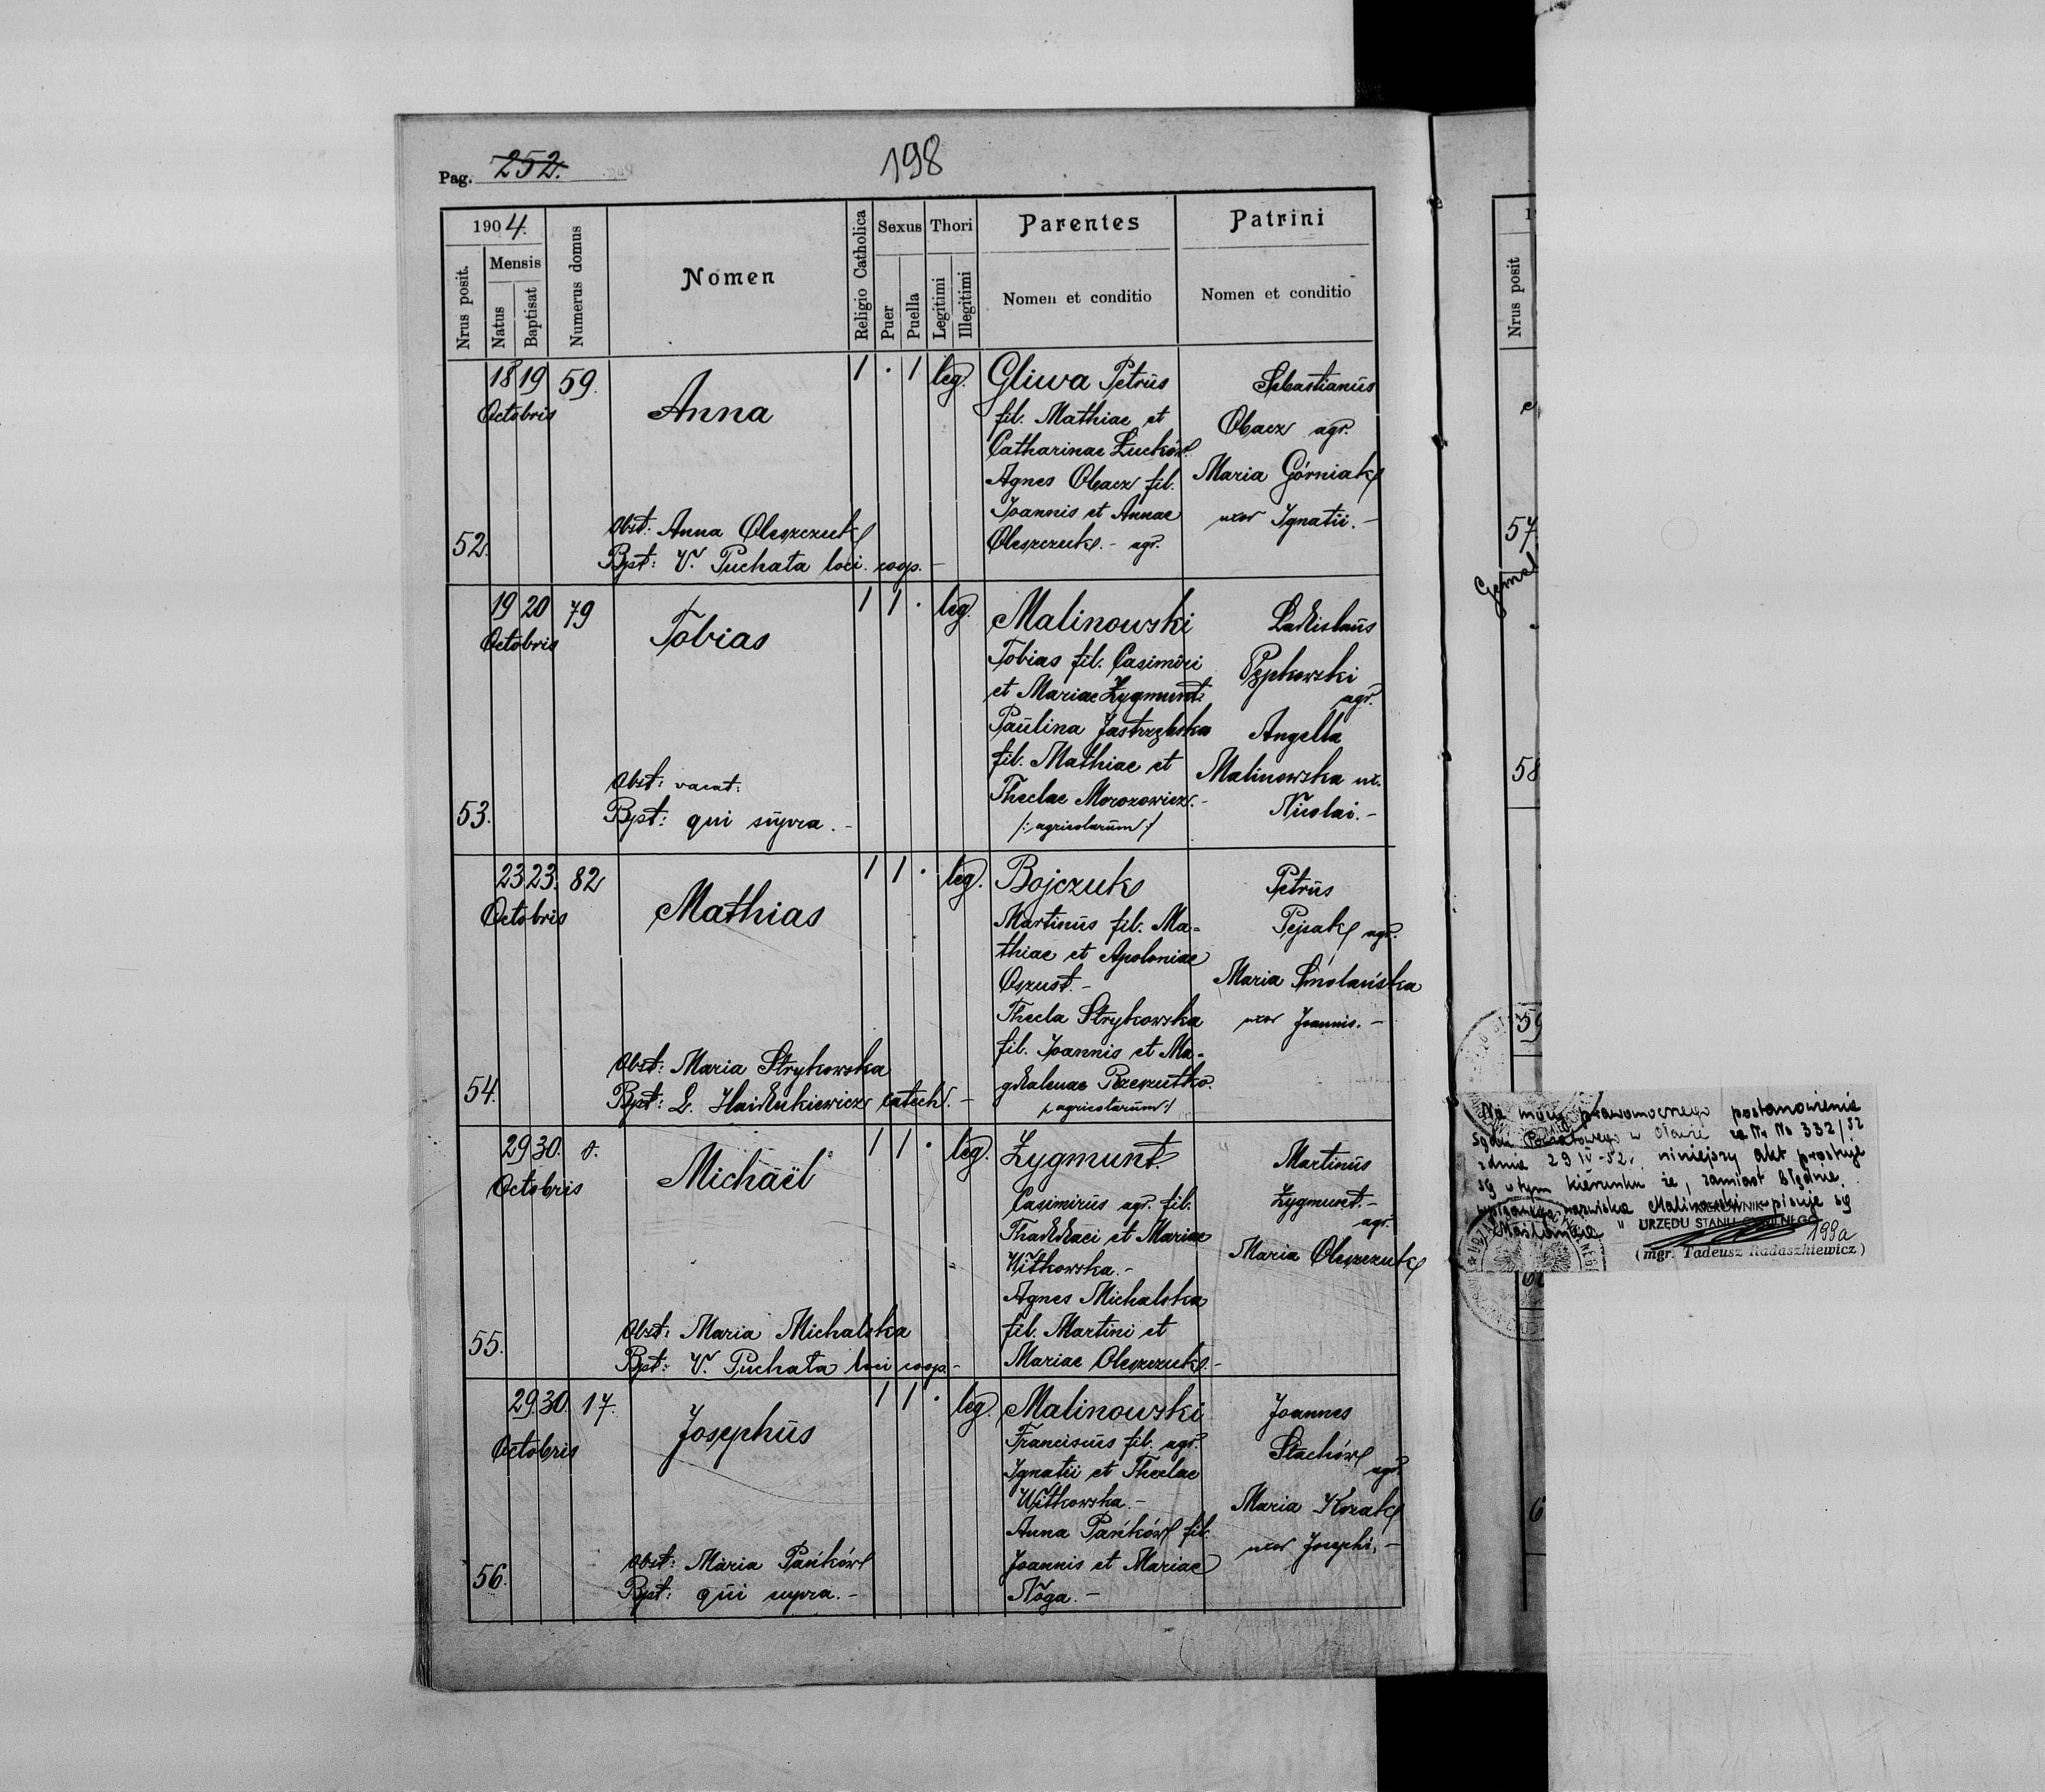 Pag. 252.
198
1904.
Nrus posit.
Mensis
Natus
Baptisat
Numerus domus
Nomen
Religio Catholica
Sexus
Puer
Puella
Thori
Legitimi
Illegitimi
Parentes
Nomen et conditio
Patrini
Nomen et conditio
52.
18 19
Octobris
59.
Anna
Obst: Anna Oleszczuk
Bpt: V. Puchata loci coop. -
1 . 1 leg.
Gliwa Petrus
fil. Mathiae et
Catharinae Łucków.
Agnes Obacz fil.
Joannis et Annae
Oleszczuk. - agr.
Sebastianus
Obacz agr.
Maria Górniak
uxor Ignatii. -
53.
19 20
Octobris
79
Tobias
Obst: vacat:
Bpt: qui supra. -
1 1 . leg.
Malinowski
Tobias fil. Casimiri
et Mariae Zygmunt.
Paulina Jastrzębska
fil. Mathiae et
Theclae Morozowicz. -
/: agricolarum :/
Ladislaus
agr.
Angella
Malinowska ux.
Nicolai. -
54.
23 23.
Octobris
82
Mathias
Obst: Maria Strykowska
Bpt: L. Haidukiewicz catech. -
1 1 . leg.
Bojczuk
Martinus fil. Ma-
thiae et Apoloniae
Oszust. -
Thecla Strykowska
fil. Joannis et Ma-
gdalenae Rzeszutko.
/: agricolarum :/
Petrus
Pejsak agr.
Maria Smolańska
uxor Joannis. -
55.
29 30.
Octobris
8.
Michaël
Obst: Maria Michalska
Bpt: V. Puchata loci coop. -
1 1 . leg.
Zygmunt.
Casimirus agr. fil.
Thaddaei et Mariae
Witkowska. -
Agnes Michalska
fil. Martini et
Mariae Oleszczuk. -
Martinus
Zygmunt. -
agr.
Maria Oleszczuk
56.
29. 30.
Octobris
17.
Josephus
Obst: Maria Pańków
Bpt: qui supra. -
1 1 . leg.
Malinowski
Franciscus fil. agr.
Ignatii et Theclae
Witkowska. -
Anna Pańków fil.
Joannis et Mariae
Noga. -
Joannes
Stachów
agr.
Maria Kozak
uxor Josephi. -
Nrus posit
57.
Gemel
58
59
Na mocy prawomocnego postanowienia
Sądu Powiatowego w Oławie za Nr No 332/52
z dnia 29 IV-52r. niniejszy akt prostuje
się w tym kierunku że, zamiast błędnie
wpisanego nazwiska Malinowski wpisuje się
KIEROWNIK
URZĘDU STANU CYWILNEGO
198a
(mgr. Tadeusz Radaszkiewicz)